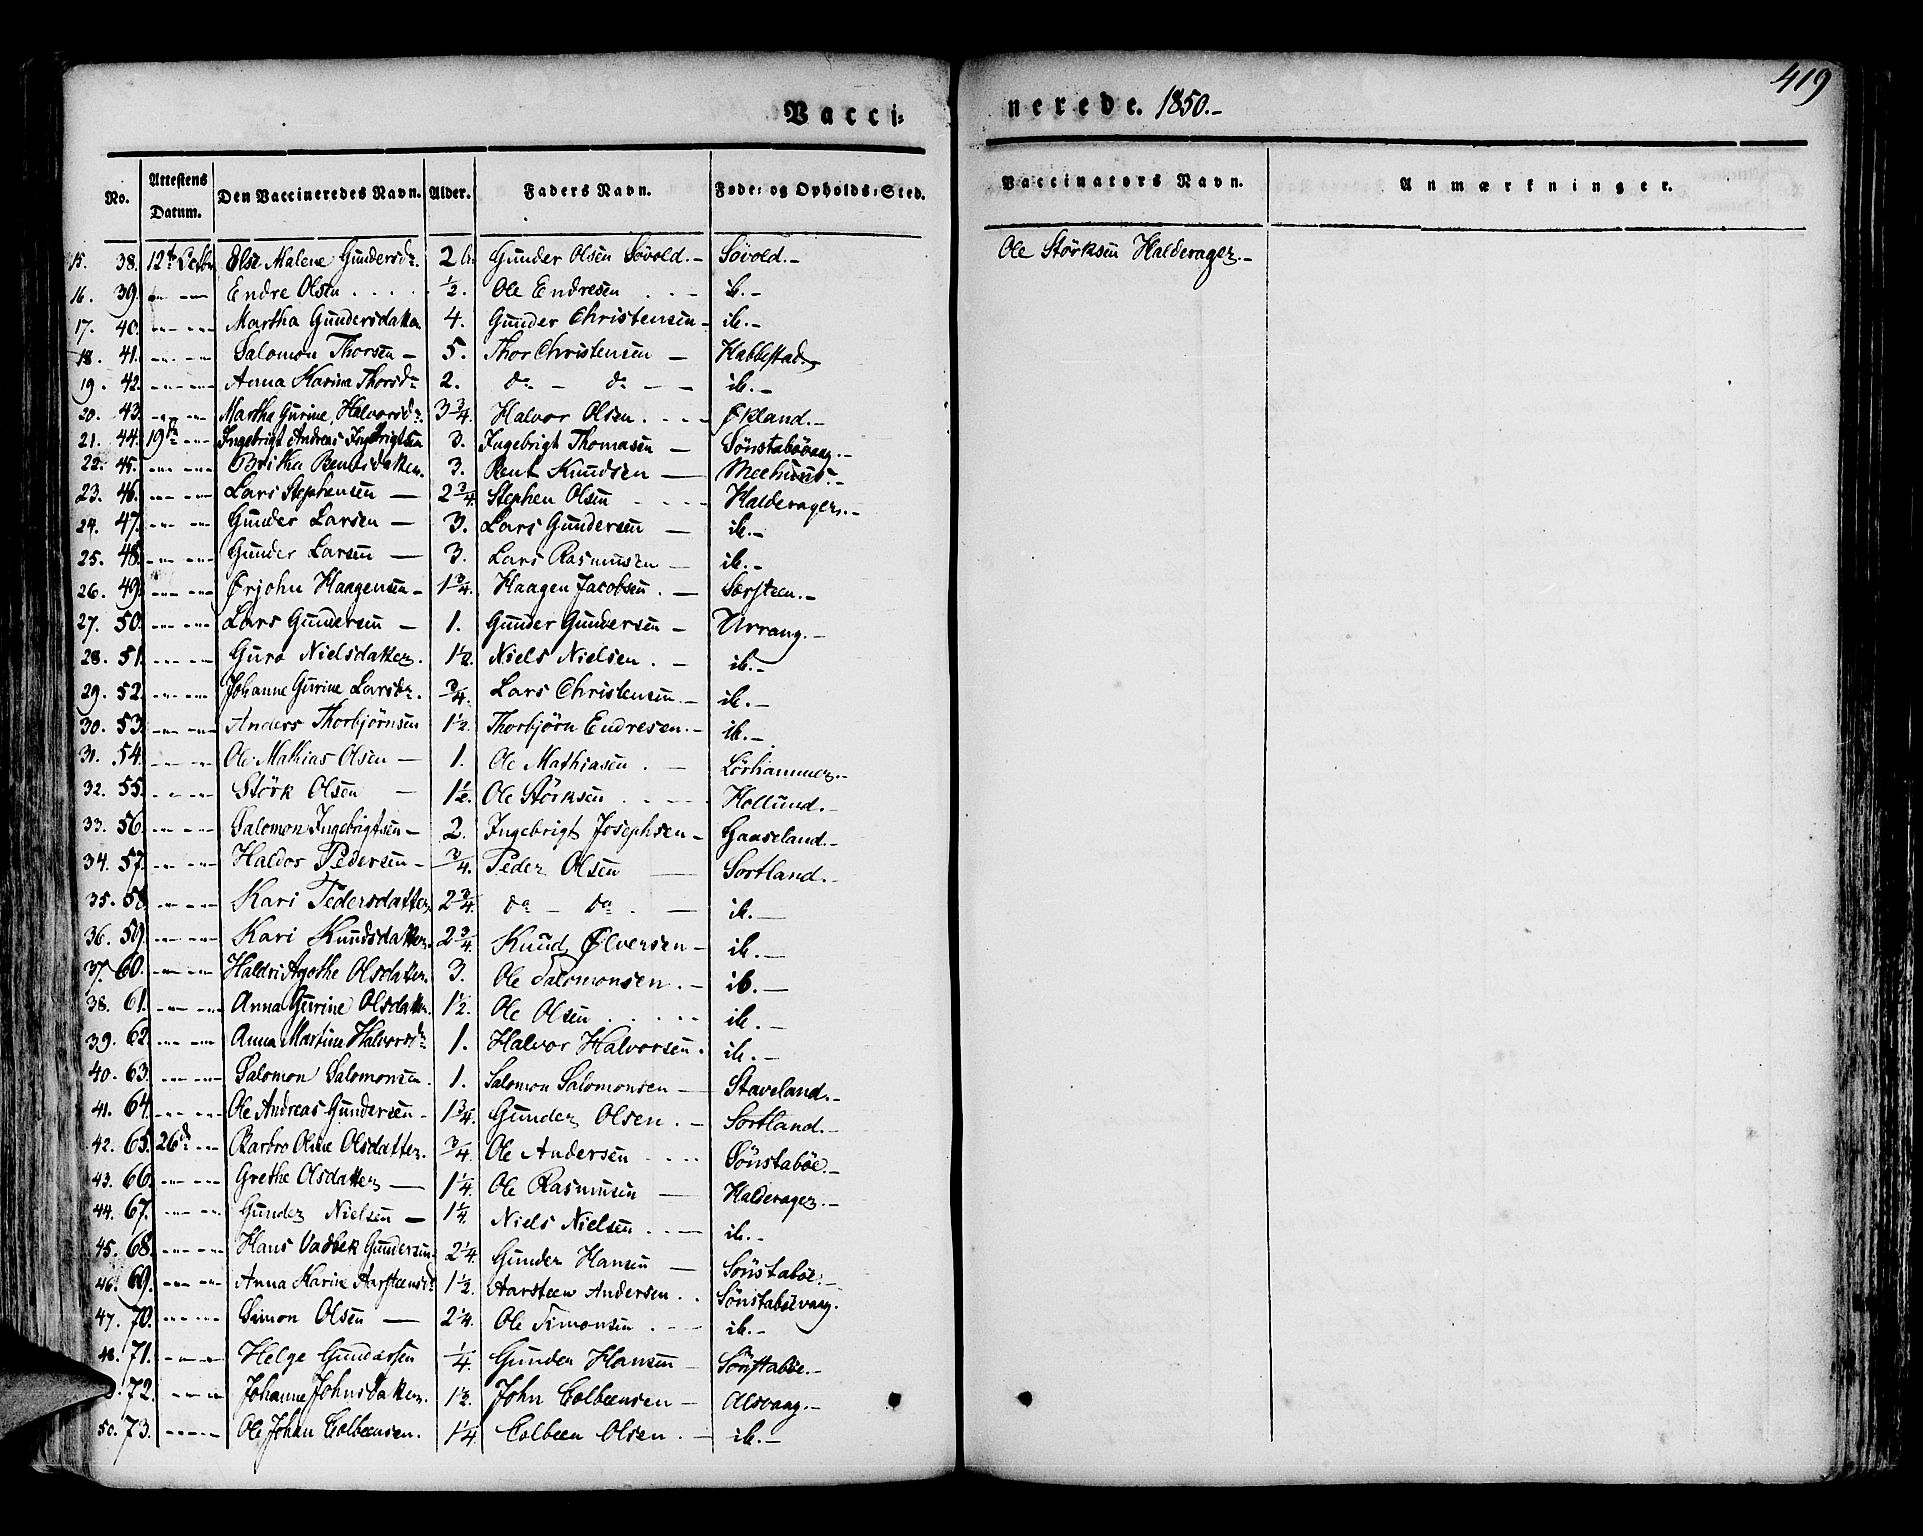 419
Vacci=
nerede. 1850.-
No. Attestens Datum. Den Vaccineredes Navn. Alder. Faders Navn. Føde- og Opholds-Sted. Vaccinators Navn. Anmærkninger.
15. 38. 12te Else Malene Gundersdr. 2 Gunder Olsen Søvold.- Søvold.- Ole Störksen Halderager.-
16. 39. Endre Olsen ½. Ole Endresen ib.-
17. 40. Martha Gundersdatter 4. Gunder Christensen- ib.-
18. 41. Salomon Thorsen- 5. Thor Christensen- Habbestad
19. 42. Anna Karina Thorsdr 2. do - do - - ib.-
20. 43. Martha Gurine Halvorsdr. 3¾. Halvor Olsen. Økland.-
21. 44. 19de Ingebrigt Andreas Ingebrigtsen 3. Ingebrigt Thomasen- Sönstabövaag.-
22. 45. Britha Bentsdatter. 3. Bent Knudsen-
23. 46. Lars Stephensen- 2¾. Stephen Olsen Halderager.-
24. 47. Gunder Larsen- 3. Lars Gundersen- ib.-
25. 48. Gunder Larsen- 3. Lars Rasmusen- ib.-
26. 49. Ørjohn Haagensen- 1¾. Haagen Jacobsen.- Særsteen.-
27. 50. Lars Gundersen- 1. Gunder Gundersen- Urrang.-
28. 51. Guro Nielsdatter. 1½. Niels Nielsen.- ib.-
29. 52. Johanne Gurine Larsdr. ¾. Lars Christensen.- ib.-
30. 53. Anders Thorbjörnsen 1½. Thorbjörn Endresen.- ib.-
31. 54. Ole Mathias Olsen- 1. Ole Mathiasen.- Lörhammer.-
32. 55. Störk Olsen- 1½. Ole Störksen Hollund.-
33. 56. Salomon Ingebrigtsen- 2. Ingebrigt Josephsen- Gaaseland.-
34. 57. Haldor Pedersen- ¾. Peder Olsen- Sortland.-
35. 58. Kari Pedersdatter 2¾. do - do.- ib.-
36. 59. Kari Knudsdatter. 2¾. Knud Ølversen- ib.-
37. 60. Haldri Agathe Olsdatter. 3. Ole Salomonsen.- ib.-
38. 61. Anna Gurine Olsdatter. 1½. Ole Olsen ib.-
39. 62. Anna Martine Halvorsdr 1. Halvor Halvorsen. ib.-
40. 63. Salomon Salomonsen 1. Salomon Salomonsen- Staveland.-
41. 64. Ole Andreas Gundersen- 1¾. Gunder Olsen.- Sortland.-
42. 65. 26de Barbro Oline Olsdatter. ¾. Ole Andersen Sönstaböe.-
43. 66. Grethe Olsdatter- 1¼. Ole Rasmusen- Halderager.-
44. 67. Gunder Nielsen- 1¼. Niels Nielsen.- ib.-
45. 68. Hans Vadbek Gundersen 2¼. Gunder Hansen- Sönstaböe.-
46. 69. Anna Marine Aarsteensdr 1½. Aarsteen Andersen. Sönstabövaag.
47. 70. Simon Olsen- 2¼. Ole Simonsen.- ib.-
48. 71. Helge Gundersen ¼. Gunder Hansen- Sönstaböe.-
72. Johanne Johnsdatter. 1½. John Colbeensen- Alsvaag.-
50. 73. Ole Johan Colbeensen. 1¼. Colbeen Olsen.- ib.-